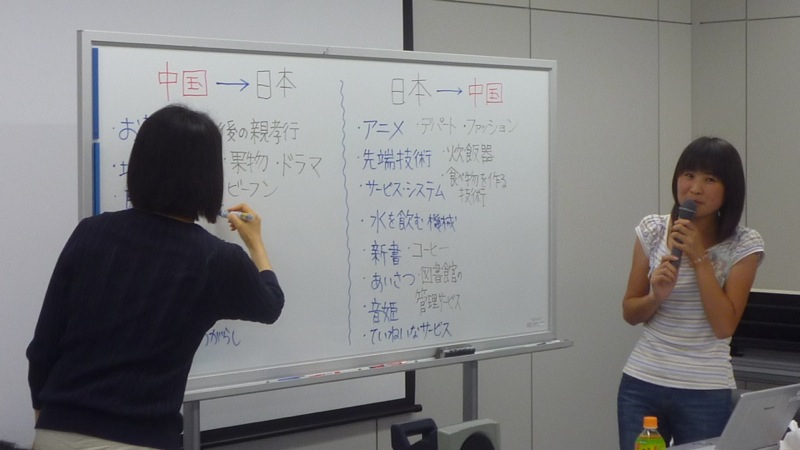 中国→日本
後の親孝行
・果物・ドラマ
ビーフン
がらし
日本→中国
・アニメ ・デパート・ファッション
・先端技術 ・炊飯器
・サービス・システム ・食べ物を作る
技術
・水を飲む機械
・新書 ・コーヒー
・あいさつ ・図書館の
管理サービス
・音姫
・ていねいなサービス